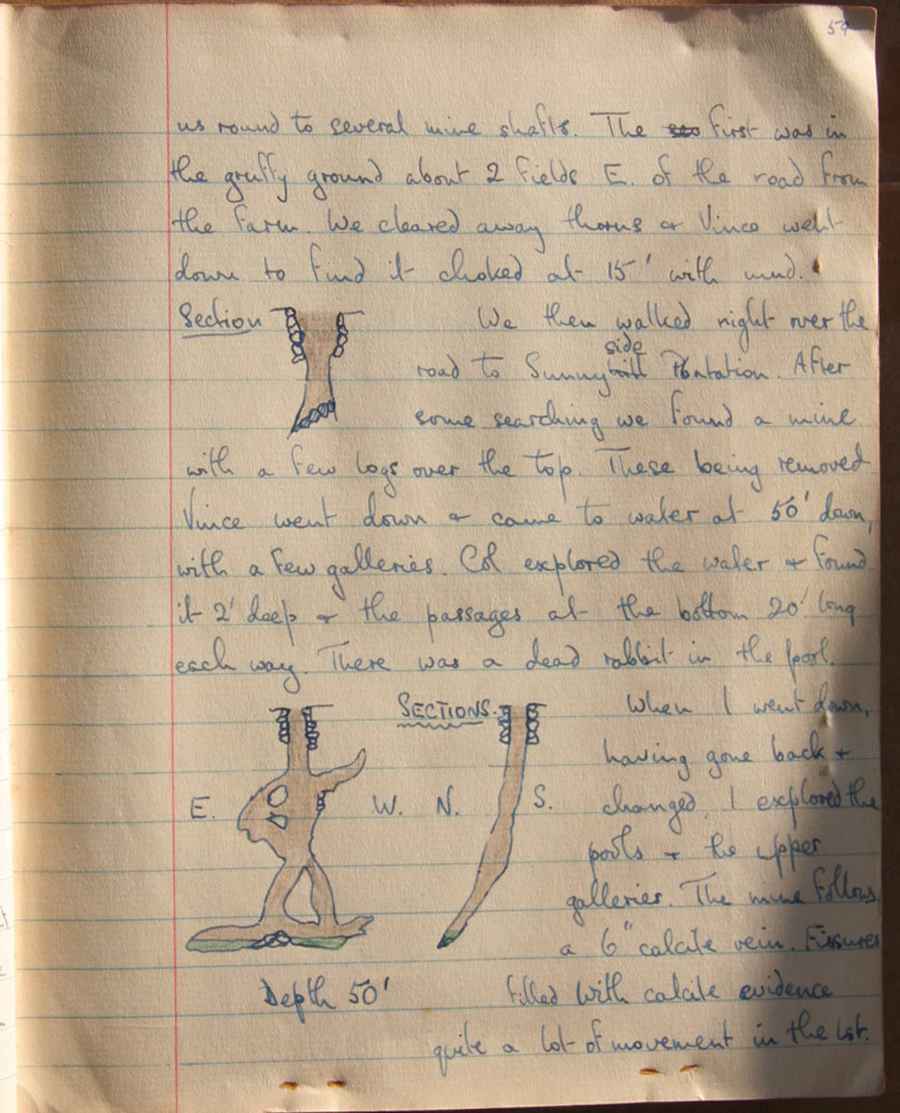 59
us round to several mine shafts. The first was in
the gruffy ground about 2 fields E. of the road from
the farm. We cleared away thorns & Vince went
down to find it choked at 15' with mud.
Section
We then walked right over the
road to Sunnyside Plantation. After
some searching we found a mine
with a few logs over the top. These being removed
Vince went down & came to water at 50' down,
with a few galleries. Col explored the water & found
it 2' deep & the passages at the bottom 20' long
each way. There was a dead rabbit in the pool.
SECTIONS.
E. W. N. S.
Depth 50'
When I went down,
having gone back &
changed, I explored the
pools & the upper
galleries. The mine follows
a 6" calcite vein. Fissures
filled with calcite evidence
quite a lot of movement in the lst.